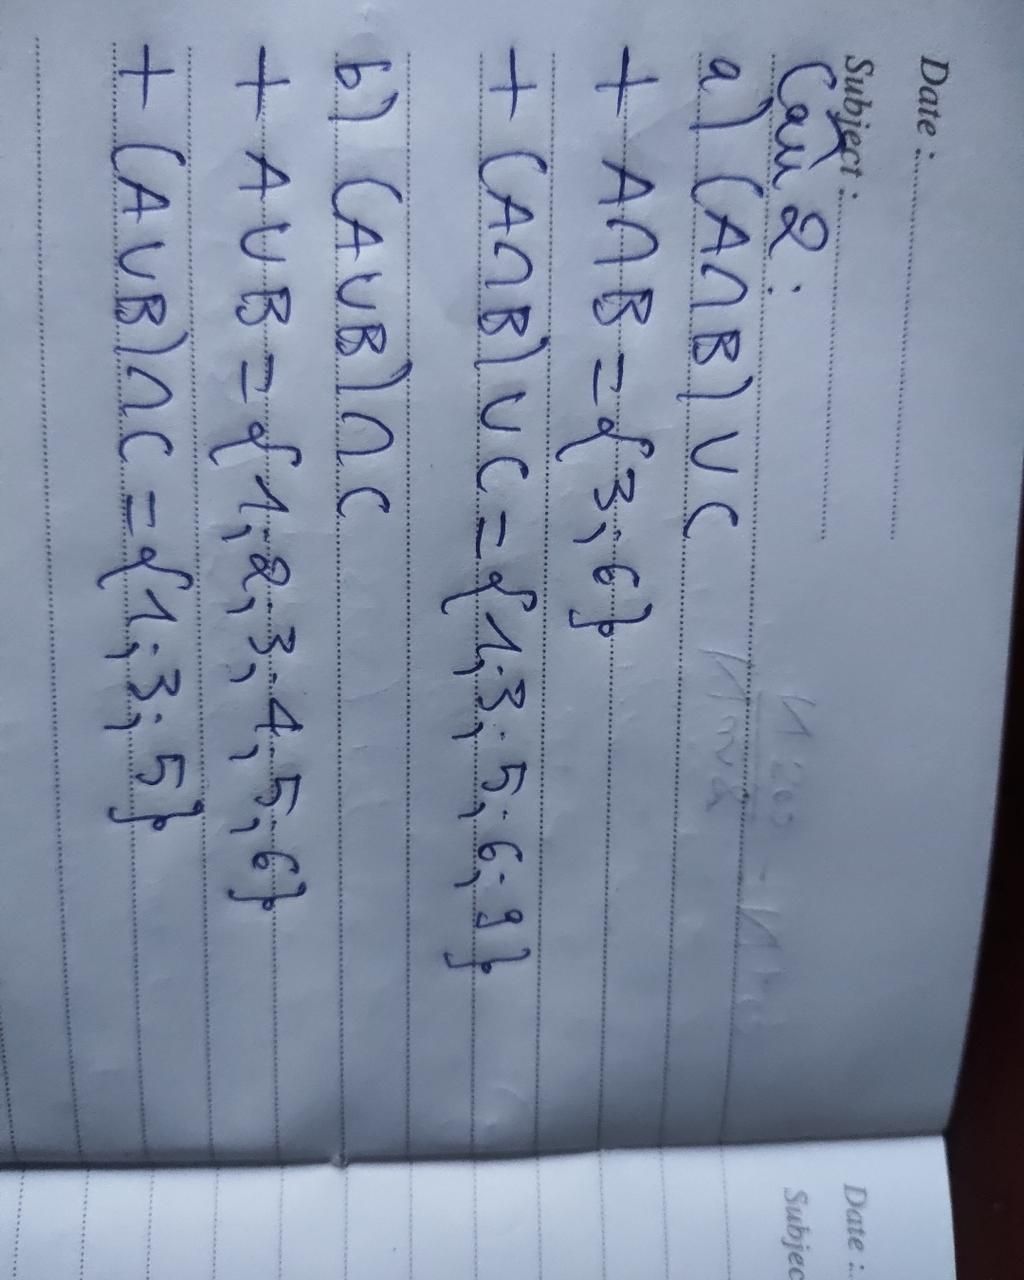 Date :
Subject :
Câu 2 :
a) (A∩B)∪C
+ A∩B = {3; 6}
+ (A∩B)∪C = {1; 3; 5; 6; 9}
b) (A∪B)∩C
+ A∪B = {1; 2; 3; 4; 5; 6}
+ (A∪B)∩C = {1; 3; 5}
Date :
Subjec